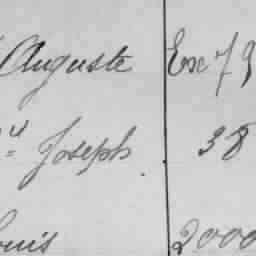 Auguste Ex 79
" Joseph. 38
ouis 2000